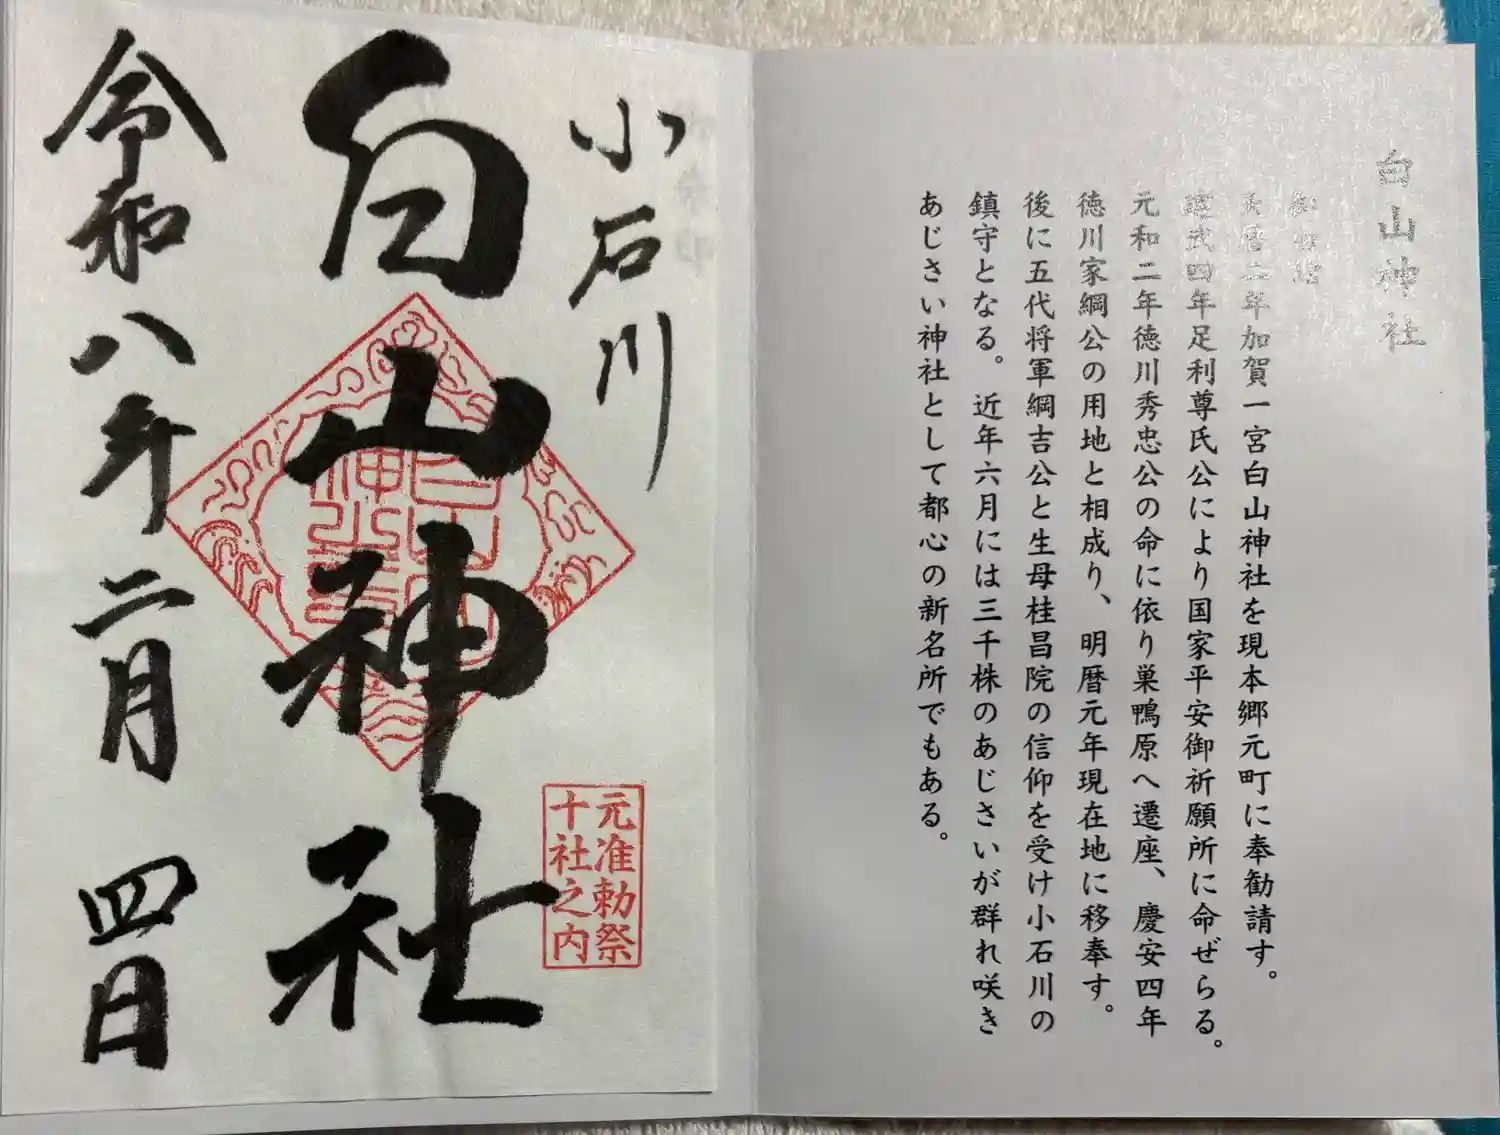 白山神社
天暦二年加賀一宮白山神社を現本郷元町に奉勧請す。
建武四年足利尊氏公により国家平安御祈願所に命ぜらる。
元和二年徳川秀忠公の命に依り巣鴨原へ遷座、慶安四年
徳川家綱公の用地と相成り、明暦元年現在地に移奉す。
後に五代将軍綱吉公と生母桂昌院の信仰を受け小石川の
鎮守となる。近年六月には三千株のあじさいが群れ咲き
あじさい神社として都心の新名所でもある。
小石川
白山神社
元准勅祭
十社之内
令和八年二月四日